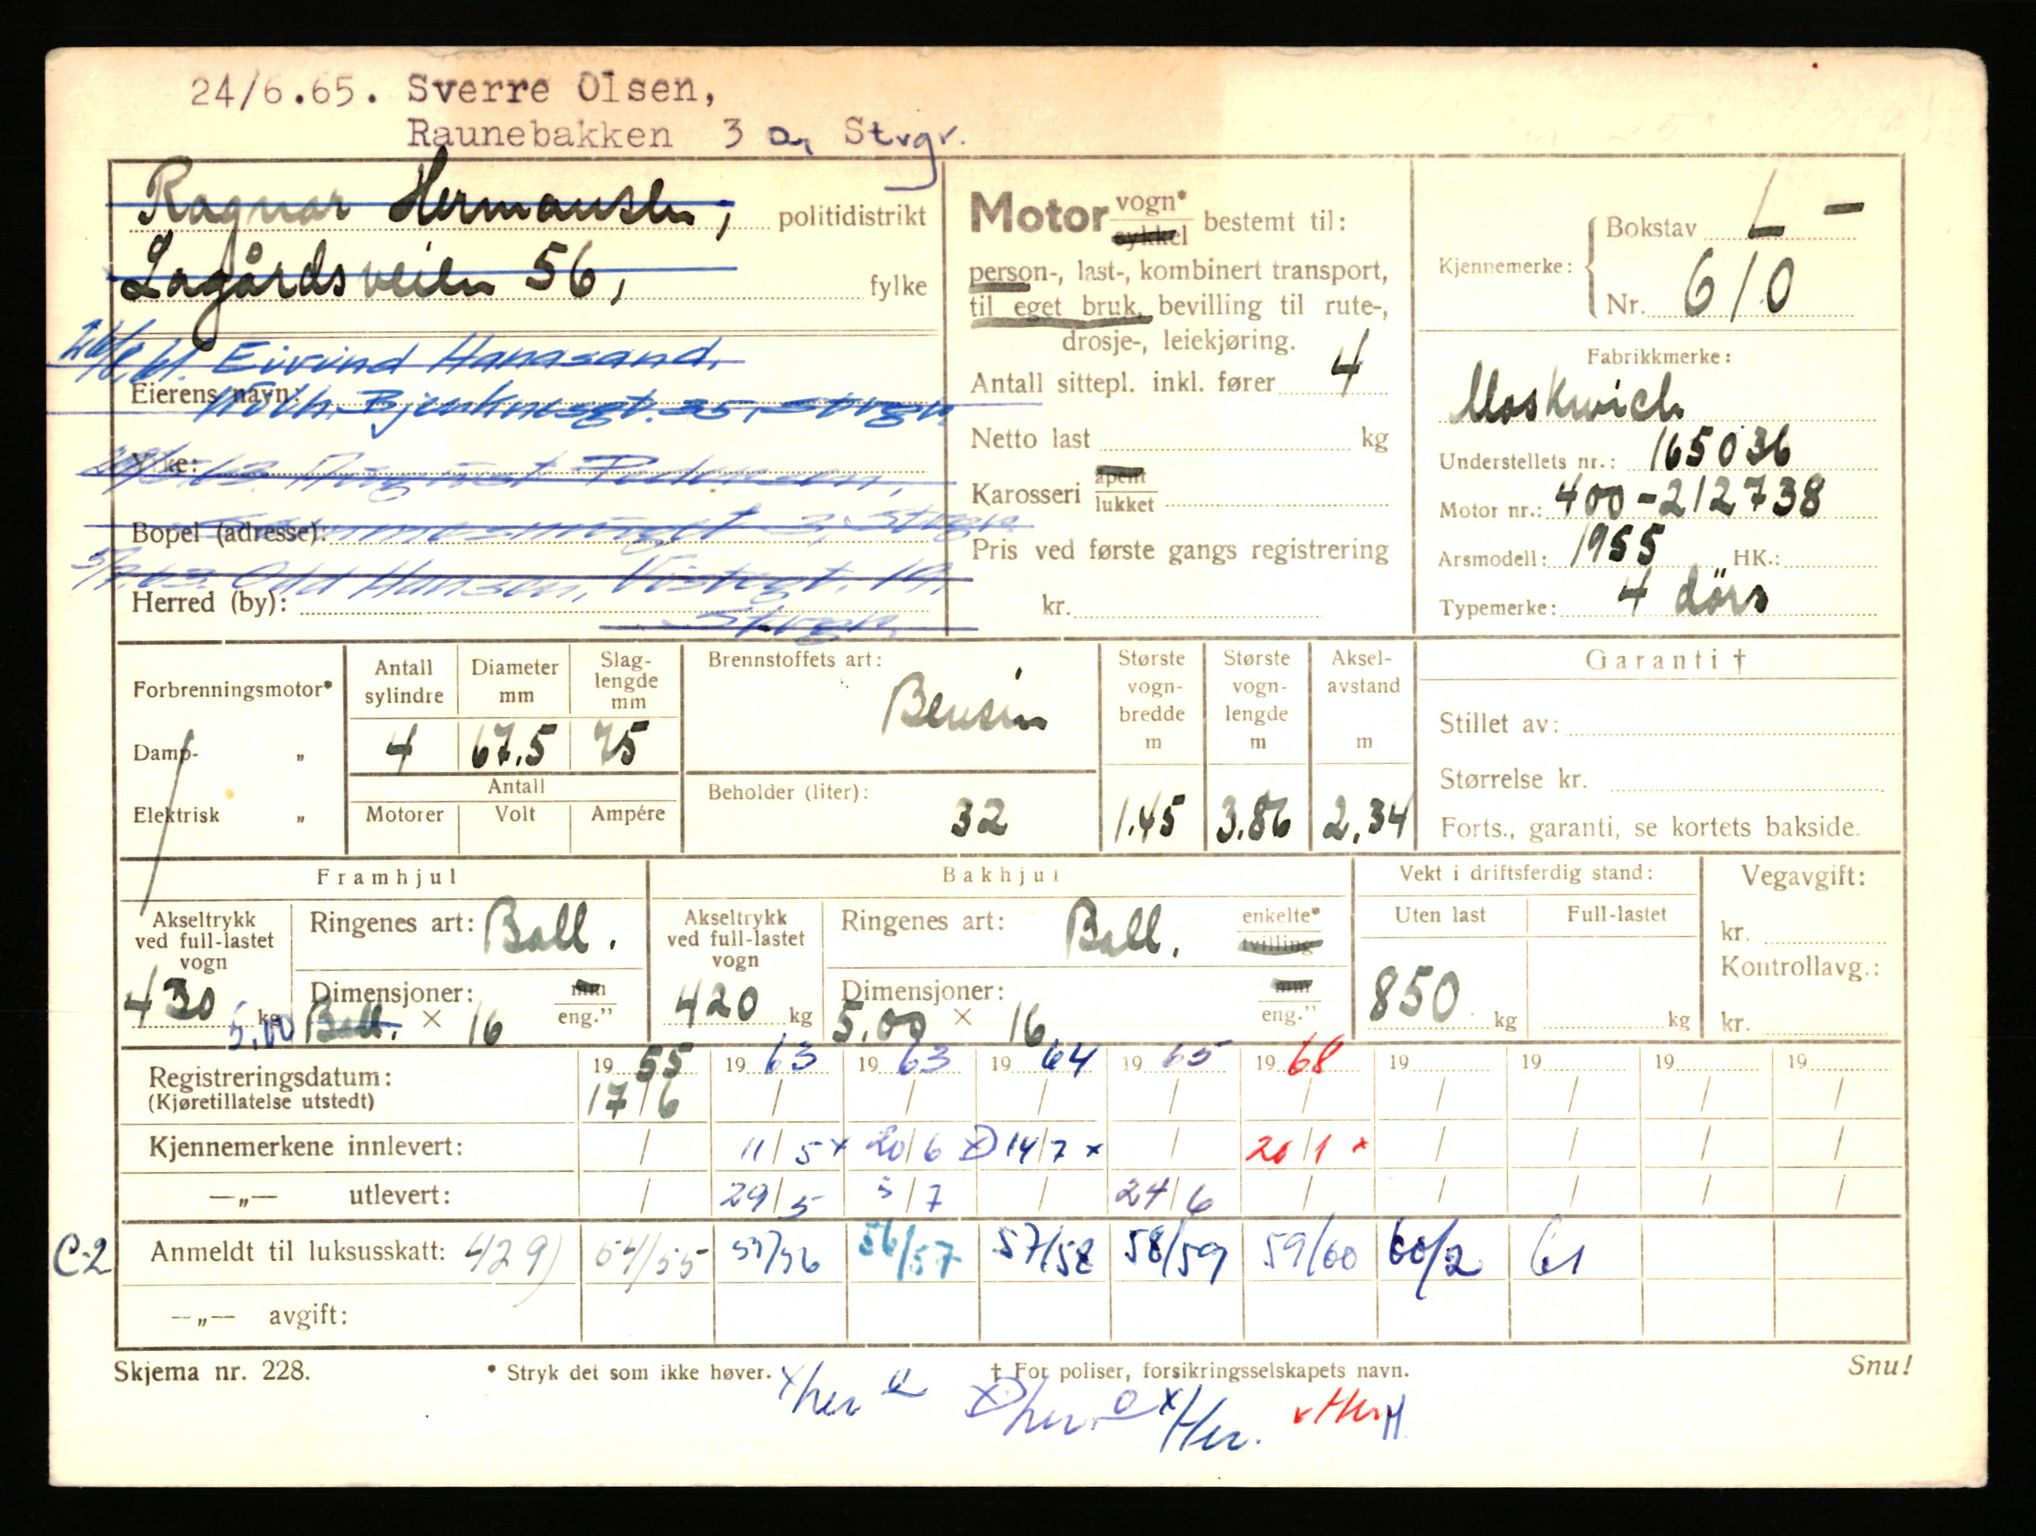 24/6.65. Sverre Olsen,
Raunebakken 3 a, Strgr.
Ragnar Hermansen, politidistrikt
Lagårdsveien 56, fylke
61. Eivind Hanasand,
Eierens navn:
35, Strgr.
Yrke: August Pedersen,
Bopel (adresse): 3, Strgr.
5/7.63. Odd Hansen, Vistegt. 19,
Herred (by): Strgr.
Motor vogn* sykkel bestemt til:
person-, last-, kombinert transport,
til eget bruk, bevilling til rute-,
drosje-, leiekjøring.
Antall sittepl. inkl. fører 4
Netto last kg
Karosseri åpent lukket
Pris ved første gangs registrering
kr.
Kjennemerke: Bokstav L -
Nr. 610
Fabrikkmerke:
Moskwich
Understellets nr.: 165036
Motor nr.: 400-212738
Årsmodell: 1955 HK.:
Typemerke: 4 dörs
Forbrenningsmotor*
Damp- „
Elektrisk „
Antall sylindre 4
Diameter mm 67.5
Slag-lengde mm 75
Antall
Motorer Volt Ampére
Brennstoffets art: Bensin
Beholder (liter): 32
Største vogn-bredde m 1.45
Største vogn-lengde m 3.86
Aksel-avstand m 2.34
Garanti †
Stillet av:
Størrelse kr.
Forts., garanti, se kortets bakside.
Framhjul
Akseltrykk ved full-lastet vogn 430 kg
Ringenes art: Ball.
Dimensjoner: 5,00 Ball. × 16 mm eng."
Bakhjul
Akseltrykk ved full-lastet vogn 420 kg
Ringenes art: Ball. enkelte* tvilling
Dimensjoner: 5,00 × 16 mm eng."
Vekt i driftsferdig stand:
Uten last Full-lastet
850 kg kg
Vegavgift:
kr.
Kontrollavg.:
kr.
Registreringsdatum: 1955 1963 1963 1964 1965 1968 19 19 19 19
(Kjøretillatelse utstedt) 17/6 / / / / / / / / /
Kjennemerkene innlevert: / 11/5 x 20/6 x 14/7 x / 20/1 x / / / /
—„— utlevert: / 29/5 5/7 / 24/6 / / / / /
C-2 Anmeldt til luksusskatt: 429) 54/55 55/56 56/57 57/58 58/59 59/60 60/2 61
—„— avgift:
Skjema nr. 228. * Stryk det som ikke høver. † For poliser, forsikringsselskapets navn. Snu!
x her x her x Her. x Her